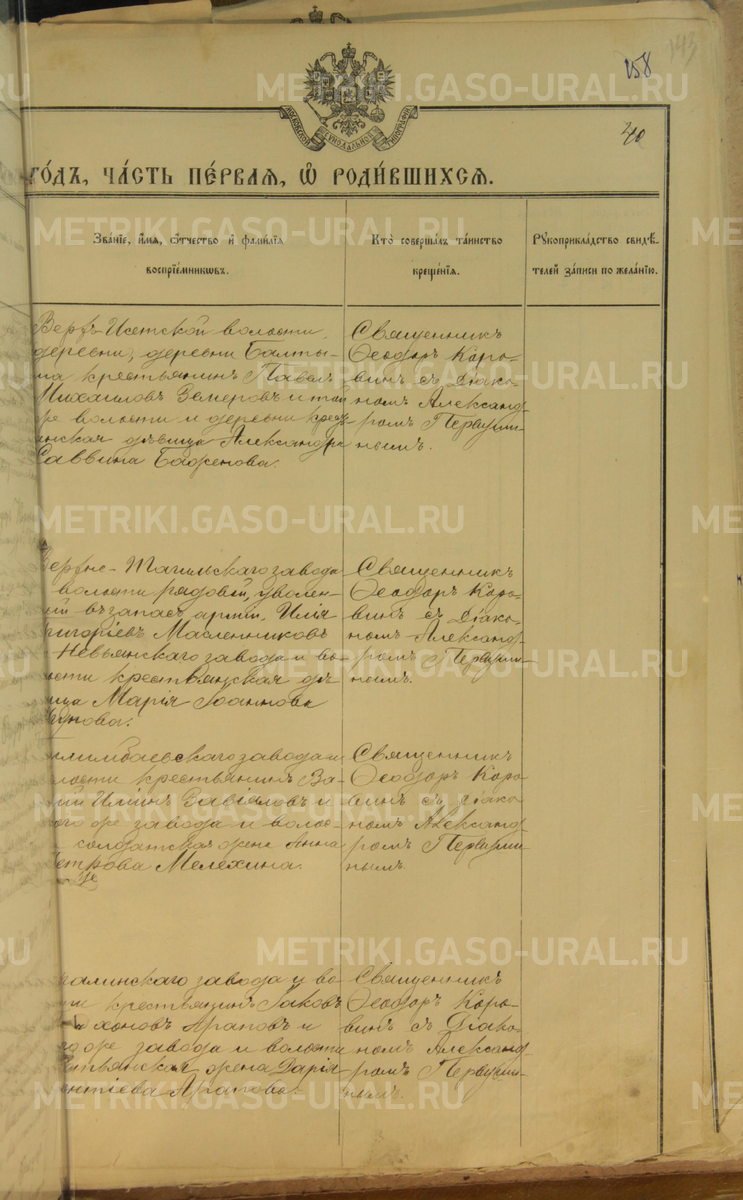 143
158
40
МОСКОВСКОЙ СѴНОДАЛЬНОЙ ТИПОГРАФІИ
ГО́ДЪ, ЧА́СТЬ ПЕ́РВАЯ, Ѽ РОДИ́ВШИХСЯ.
Зва́нїе, и҆́мя, ѻ҆́тчество и҆ фами́лїѧ
воспрїе́мниковъ.
Кто̀ соверша́лъ та́инство
креще́нїѧ.
Рукоприкла́дство свидѣ́-
телей за́писи по жела́нїю.
Верхъ-Исетской волости,
деревни, деревни Балты-
ма крестьянинъ Павелъ
Михаиловъ Земеровъ и той
же волости и деревни крест
янская дѣвица Александра
Саввина Баженова.
Священникъ
Ѳеодоръ Коро-
винъ съ Діако-
номъ Александ-
ромъ Первуши-
нымъ.
Верхне-Тагильскаго завода
волости рядовой, уволен-
ый въ запасъ арміи, Илія
ригоріевъ Масленниковъ
Невьянскаго завода и во-
ости крестьянская дѣ-
ица Марія Іоаннова
Священникъ
Ѳеодоръ Коро-
винъ съ Діако-
номъ Александ-
ромъ Первуши-
нымъ.
илимбаевскаго завода и
лости крестьянинъ Ва-
ій Иліинъ Завіаловъ и
ого же завода и волос-
солдатская жена Анна
етрова Мелехина.
Священникъ
Ѳеодоръ Коро-
винъ съ Діако-
номъ Александ-
ромъ Первуши-
нымъ.
галинскаго завода и во-
ти крестьянинъ Іаковъ
хоновъ Араповъ и
же завода и волости
тьянская жена Дарія
ентіева Арапова.
Священникъ
Ѳеодоръ Коро-
винъ съ Діако-
номъ Александ-
ромъ Первуши-
нымъ.
METRIKI.GASO-URAL.RU